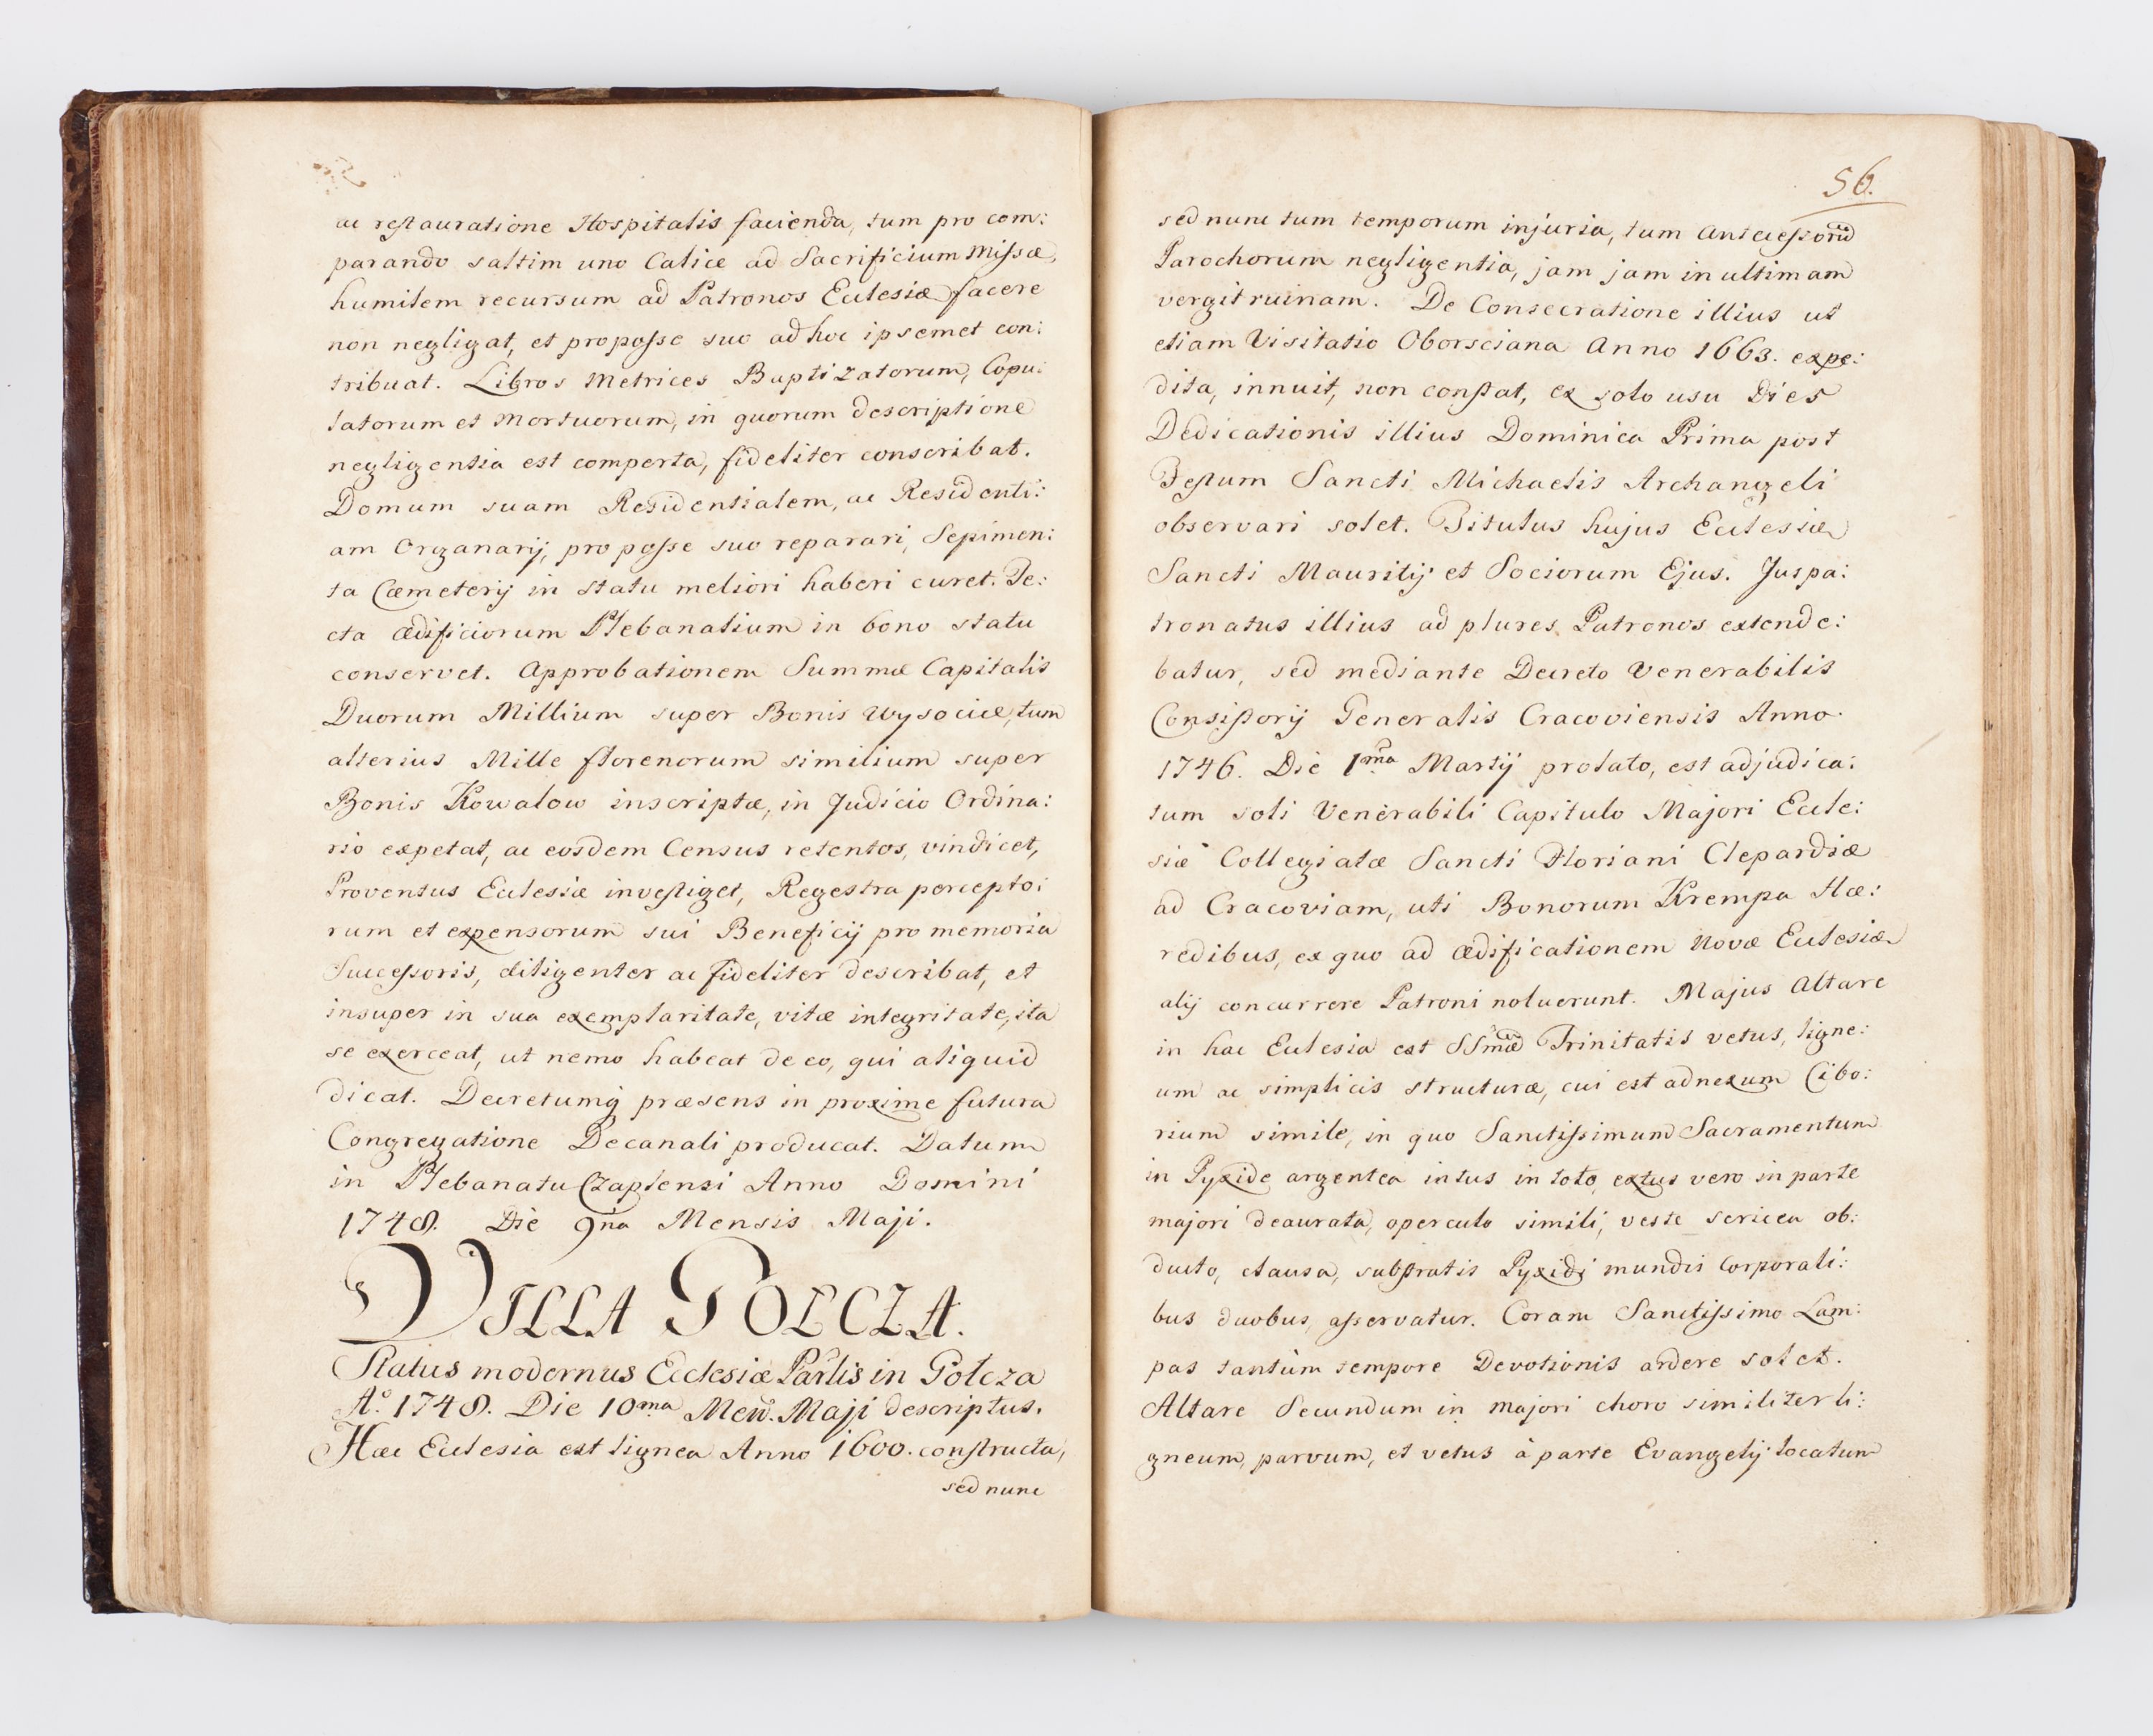 ac restauratione Hospitalis facienda, tum pro com:
parando saltim uno Calice ad Sacrificium Missæ,
humilem recursum ad Patronos Ecclesiæ facere
non negligat, et proposse suo ad hoc ipsemet con:
tribuat. Libros Metrices Baptizatorum, Copu:
latorum et Mortuorum, in quorum descriptione
negligentia est comperta, fideliter conscribat.
Domum suam Residentialem, ac Residenti:
am Organarij, pro posse suo reparari, Sepimen:
ta Cæmeterij in statu meliori haberi curet. Te:
cta ædificiorum Plebanalium in bono statu
conservet. Approbationem Summæ Capitalis
Duorum Millium super Bonis Wysocice, tum
alterius Mille florenorum similium super
Bonis Kowalow inscriptæ, in Judicio Ordina:
rio expetat, ac eosdem Census retentos, vindicet,
Proventus Ecclesiæ investiget, Regestra percepto:
rum et expensorum sui Beneficij pro memoria
Successoris, diligenter ac fideliter describat, et
insuper in sua exemplaritate, vitæ integritate, ita
se exerceat, ut nemo habeat de eo, qui aliquid
dicat. Decretumq præsens in proxime futura
Congregatione Decanali producat. Datum
in Plebanatu Czaplensi Anno Domini
1748. Die 9na Mensis Maji.
VILLA GOLCZA.
Status modernus Ecclesiæ Parlis in Golcza
Ao. 1748. Die 10ma Men. Maji descriptus.
Hæc Ecclesia est lignea Anno 1600. constructa,
sed nunc
56.
sed nunc tum temporum injuria, tum Antecessorū
Parochorum negligentia, jam jam in ultimam
vergit ruinam. De Consecratione illius ut
etiam Visitatio Oborsciana Anno 1663. expe:
dita, innuit, non constat, ex solo usu Dies
Dedicationis illius Dominica Prima post
Festum Sancti Michaelis Archangeli
observari solet. Titulus hujus Ecclesiæ
Sancti Mauritij et Sociorum Ejus. Juspa:
tronatus illius ad plures Patronos extende:
batur, sed mediante Decreto Venerabilis
Consistorij Generalis Cracoviensis Anno
1746. Die 1ma Martij prolato, est adjudica:
tum soli Venerabili Capitulo Majori Eccle:
siæ Collegiatæ Sancti Floriani Clepardiæ
ad Cracoviam, uti Bonorum Krempa Hæ:
redibus, ex quo ad ædificationem novæ Ecclesiæ
alij concurrere Patroni noluerunt. Majus Altare
in hac Ecclesia est SSmæ Trinitatis vetus, ligne:
um ac simplicis structuræ, cui est adnexum Cibo:
rium simile, in quo Sanctissimum Sacramentum
in Pyxide argentea intus in toto, extus vero in parte
majori deaurata, operculo simili, veste sericea ob:
ducto, clausa, substratis Pyxidi mundis Corporali:
bus duobus, asservatur. Coram Sanctissimo Lam:
pas tantùm tempore Devotionis ardere solet.
Altare Secundum in majori choro similiter li:
gneum, parvum, et vetus à parte Evangelij locatum